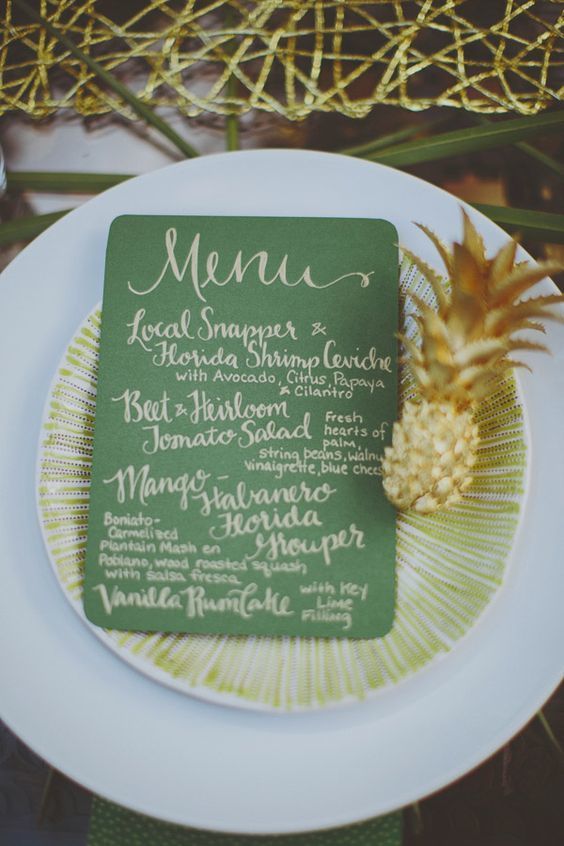 Menu
Local Snapper &
Florida Shrimp Ceviche
with Avocado, Citrus, Papaya
& Cilantro
Beet & Heirloom
Tomato Salad
Fresh
hearts of
palm,
string beans, walnut
vinaigrette, blue cheese
Mango-
Habanero
Florida
Grouper
Boniato-
Carmelized
Plantain Mash en
Poblano, wood roasted squash,
with salsa fresca
Vanilla Rum Cake
with Key
Lime
Filling